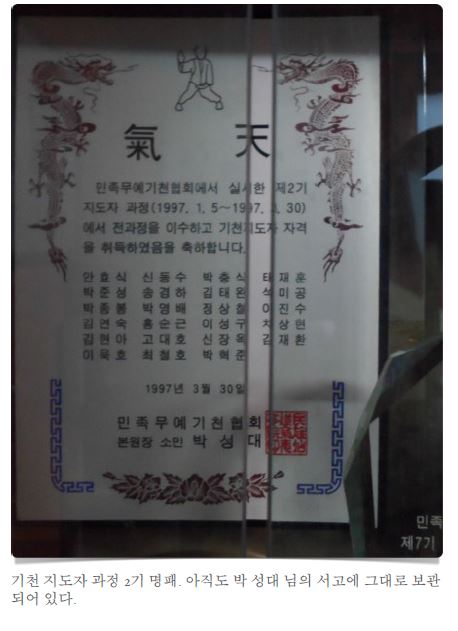 氣 天
민족무예기천협회에서 실시한 제2기
지도자 과정(1997. 1. 5～1997. 3. 30)
에서 전과정을 이수하고 기천지도자 자격
을 취득하였음을 축하합니다.
안효식 신동수 박충식 태재훈
박준성 송경하 김태완 석미공
박종봉 박영배 장상철 이진수
김연숙 홍순근 이성구 차상현
김현아 고대호 신장옥 김재환
이욱호 최철호 박혁준
1997년 3월 30일
민족무예기천협회
본원장 소민 박성대
민족
제7기
기천 지도자 과정 2기 명패. 아직도 박 성대 님의 서고에 그대로 보관
되어 있다.